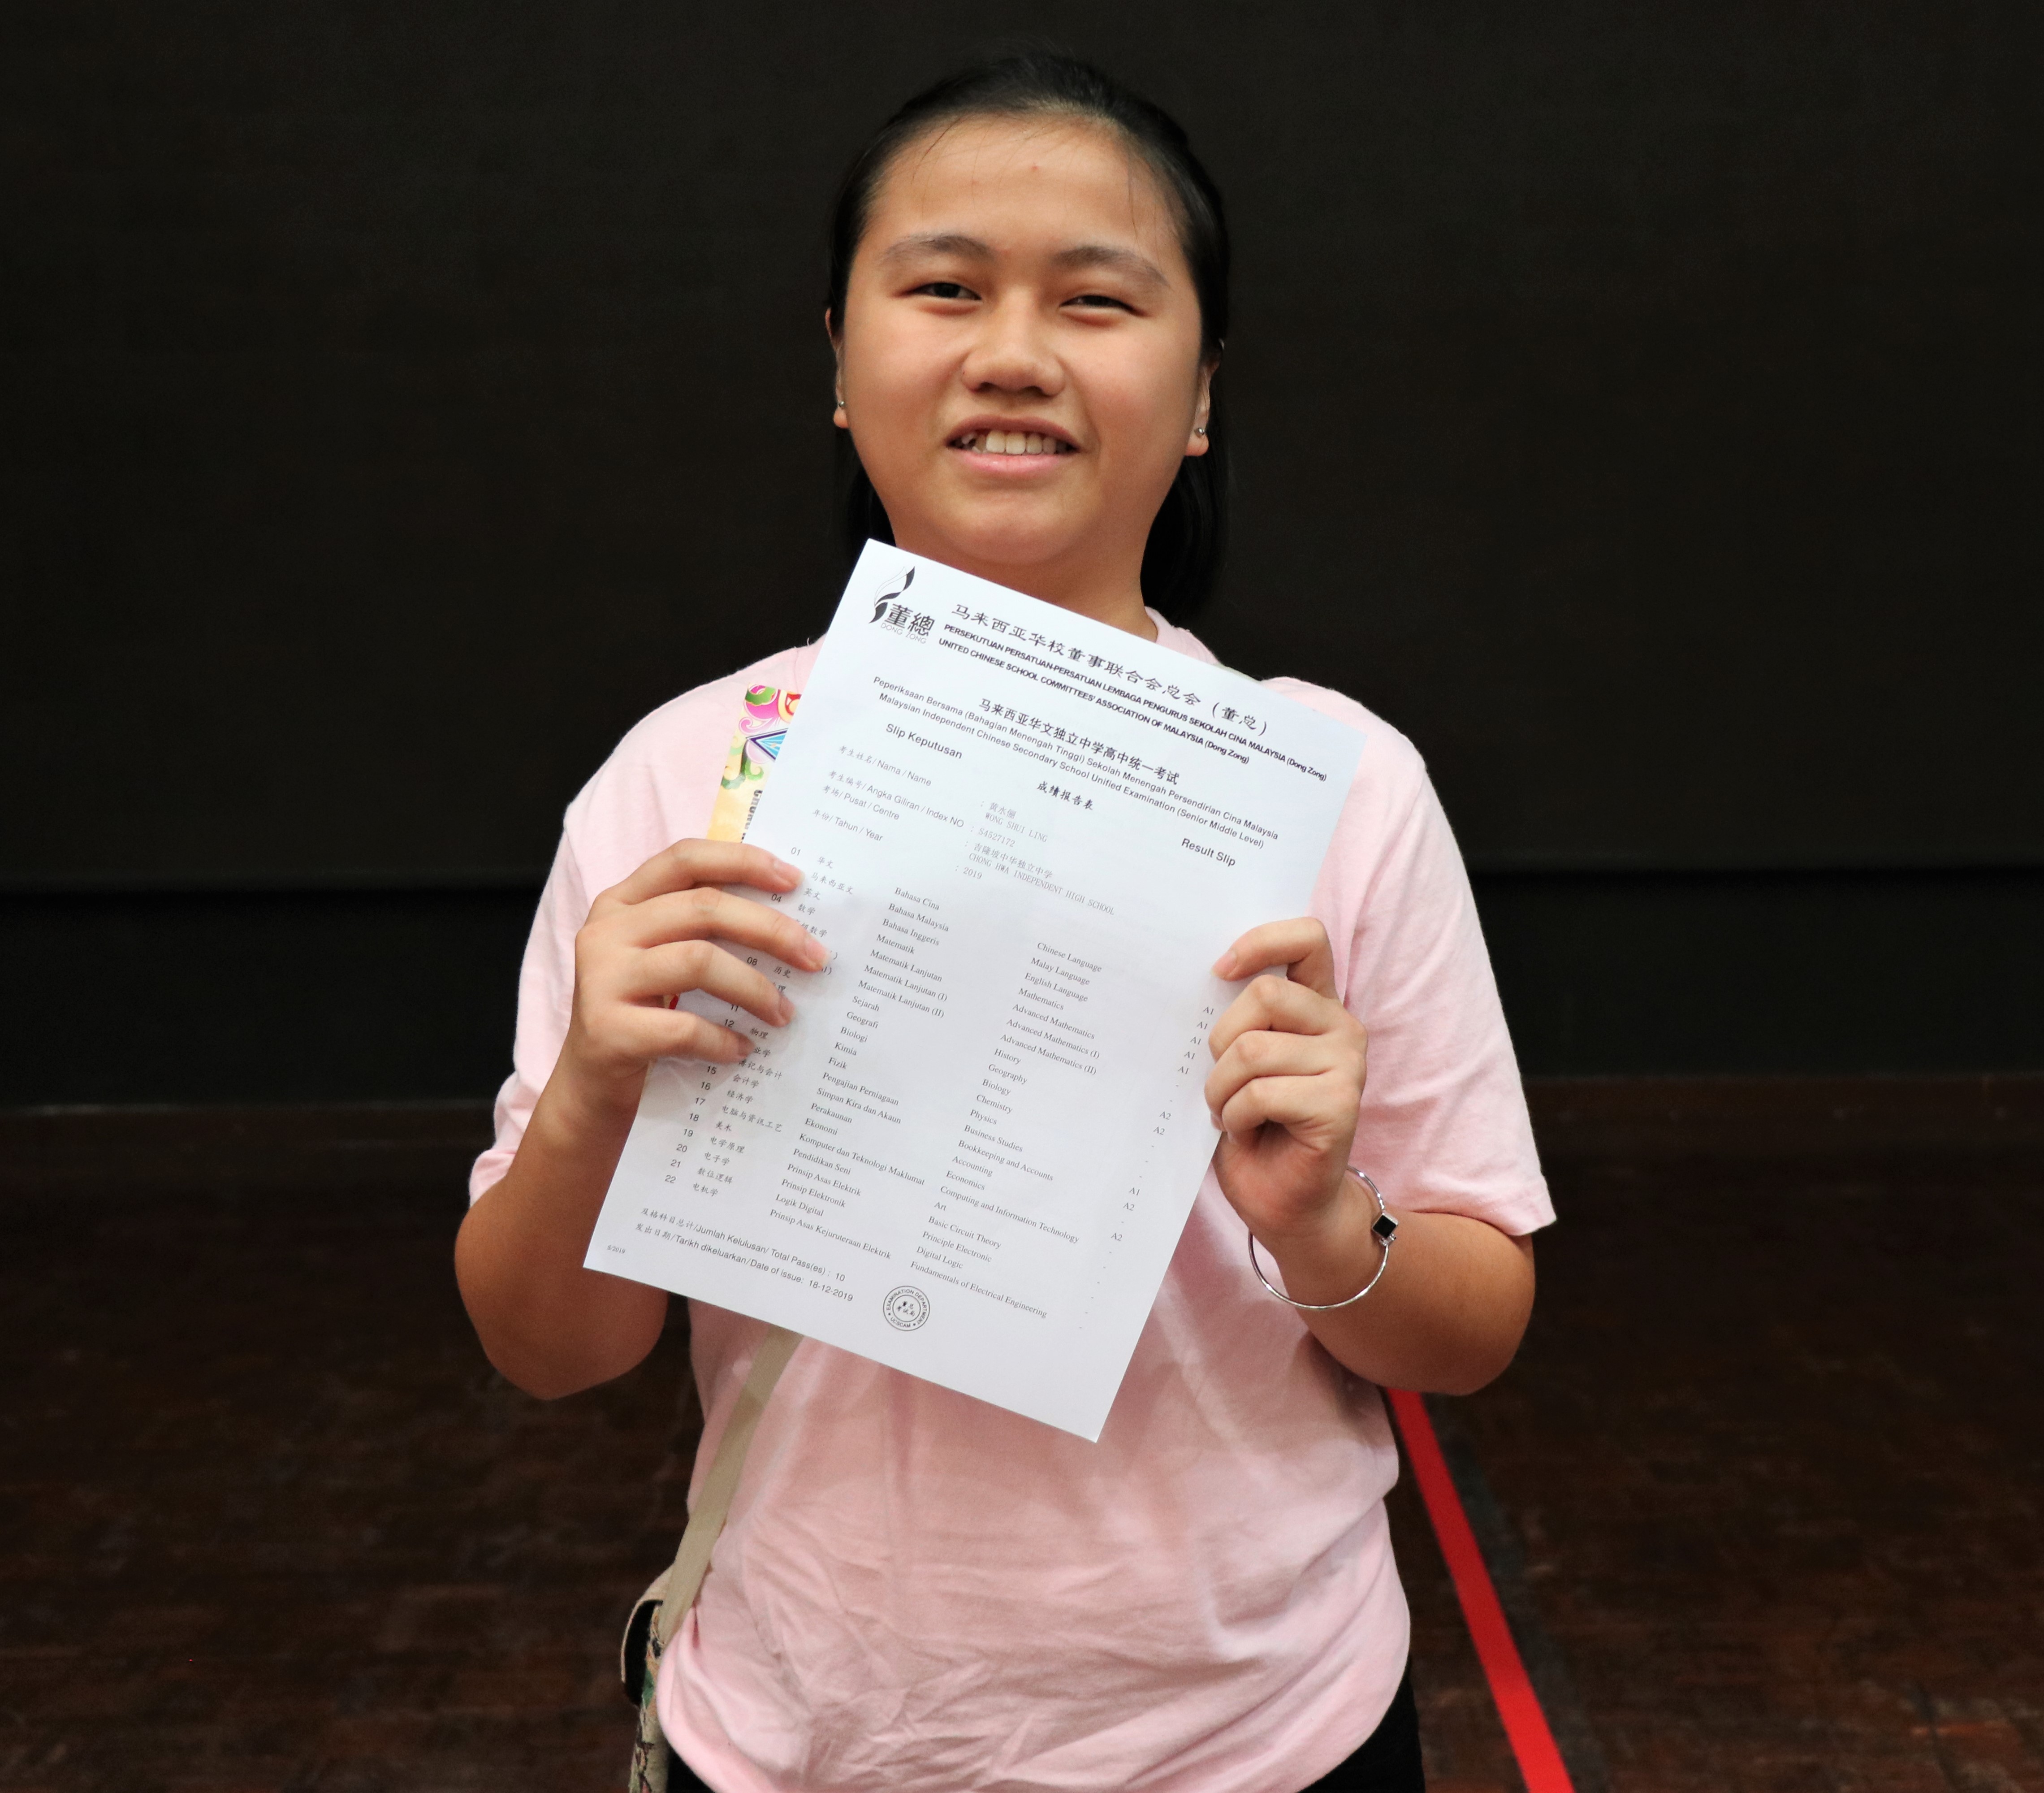 董總
DONG ZONG
马来西亚华校董事联合会总会（董总）
PERSEKUTUAN PERSATUAN-PERSATUAN LEMBAGA PENGURUS SEKOLAH CINA MALAYSIA (Dong Zong)
UNITED CHINESE SCHOOL COMMITTEES' ASSOCIATION OF MALAYSIA (Dong Zong)
马来西亚华文独立中学高中统一考试
Peperiksaan Bersama (Bahagian Menengah Tinggi) Sekolah Menengah Persendirian Cina Malaysia
Malaysian Independent Chinese Secondary School Unified Examination (Senior Middle Level)
Slip Keputusan 成绩报告表 Result Slip
考生姓名/ Nama / Name : 黄水
WONG SHUI LING
考生编号/ Angka Giliran / Index NO : S4527172
考场/ Pusat / Centre : 吉隆坡中华独立中学
CHONG HWA INDEPENDENT HIGH SCHOOL
年份/ Tahun / Year : 2019
01 华文 Bahasa Cina Chinese Language A1
马来西亚文 Bahasa Malaysia Malay Language A1
英文 Bahasa Inggeris English Language A1
04 数学 Matematik Mathematics A1
数学 Matematik Lanjutan Advanced Mathematics -
Matematik Lanjutan (I) Advanced Mathematics (I) A2
Matematik Lanjutan (II) Advanced Mathematics (II) A2
08 历史 Sejarah History -
理 Geografi Geography -
Biologi Biology -
11 Kimia Chemistry A1
12 物理 Fizik Physics A2
业学 Pengajian Perniagaan Business Studies -
簿记与会计 Simpan Kira dan Akaun Bookkeeping and Accounts A2
15 会计学 Perakaunan Accounting -
16 经济学 Ekonomi Economics -
17 电脑与资讯工艺 Komputer dan Teknologi Maklumat Computing and Information Technology -
18 美术 Pendidikan Seni Art -
19 电学原理 Prinsip Asas Elektrik Basic Circuit Theory -
20 电子学 Prinsip Elektronik Principle Electronic -
21 数位逻辑 Logik Digital Digital Logic -
22 电机学 Prinsip Asas Kejuruteraan Elektrik Fundamentals of Electrical Engineering -
及格科目总计/Jumlah Kelulusan/ Total Pass(es) : 10
发出日期/Tarikh dikeluarkan/Date of issue: 18-12-2019
EXAMINATION DEPARTMENT
UCSCAM
董总
考试局